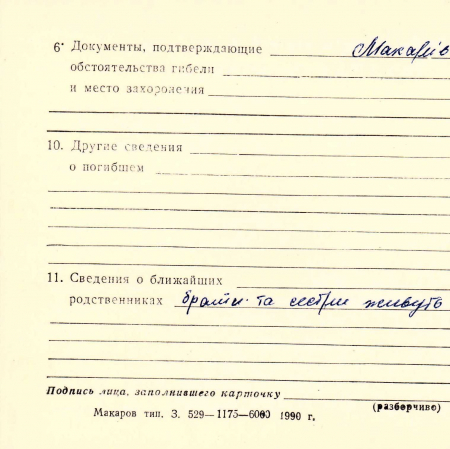 6· Документы, подтверждающие Макарів
обстоятельства гибели
и место захоронения
10. Другие сведения
о погибшем
11. Сведения о ближайших
родственниках брати та сестри живуть
Подпись лица, заполнившего карточку
(разборчиво)
Макаров тип. З. 529—1175—6000 1990 г.